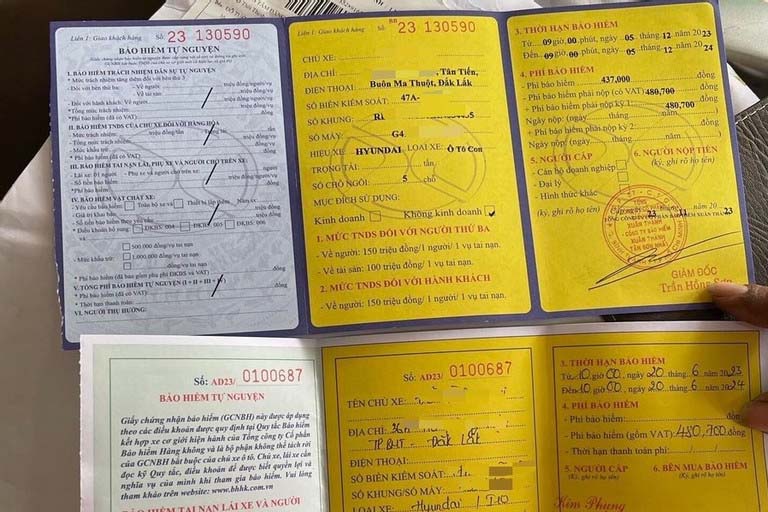 Liên 1: Giao khách hàng Số: 23 130590
BẢO HIỂM TỰ NGUYỆN
I. BẢO HIỂM TRÁCH NHIỆM DÂN SỰ TỰ NGUYỆN
* Mức trách nhiệm tăng thêm đối với bên thứ 3
- Đối với bên thứ ba: Về người triệu đồng/người/vụ
Về tài sản triệu đồng/vụ
- Đối với hành khách: Về người triệu đồng/người/vụ
* Tổng mức trách nhiệm: triệu đồng/vụ
* Phí bảo hiểm (đã có VAT) đồng
II. BẢO HIỂM TNDS CỦA CHỦ XE ĐỐI VỚI HÀNG HÓA
- Mức trách nhiệm: triệu đồng/tấn
- Tổng mức trách nhiệm: triệu đồng/vụ
- Mức khấu trừ:
* Phí bảo hiểm (đã có VAT) đồng
III. BẢO HIỂM TAI NẠN LÁI, PHỤ XE VÀ NGƯỜI CHỞ TRÊN XE:
- Lái xe: 01 người - Phụ xe và người chở trên xe:
- Số tiền bảo hiểm: triệu đồng/người/vụ
* Phí bảo hiểm: đồng
IV. BẢO HIỂM VẬT CHẤT XE
- Yêu cầu bảo hiểm: Toàn bộ xe Thiết bị lắp thêm
- Giá trị khai báo: đồng
- Số tiền bảo hiểm theo yêu cầu đồng
* Điều khoản bổ sung: ĐKBS: 004 ĐKBS: 005 ĐKBS: 006
500.000 đồng/vụ tai nạn
- Mức khấu trừ: 1.000.000 đồng/vụ tai nạn
đồng/vụ tai nạn
* Phí bảo hiểm (đã bao gồm phụ phí ĐKBS và VAT) đồng
V. TỔNG PHÍ BẢO HIỂM TỰ NGUYỆN (I + II + III + IV)
* Phí bảo hiểm (đã có VAT): đồng
* Thời hạn thanh toán:
VI. NGƯỜI THỤ HƯỞNG:
Liên 1: Giao khách hàng Số: BB 23 130590
CHỦ XE:
ĐỊA CHỈ: , Tân Tiến,
ĐIỆN THOẠI: Buôn Ma Thuột, Đắk Lắk
SỐ BIỂN KIỂM SOÁT: 47A-
SỐ KHUNG:
SỐ MÁY: G4
HIỆU XE: HYUNDAI LOẠI XE: Ô Tô Con
TRỌNG TẢI: tấn
SỐ CHỖ NGỒI: 5 chỗ
MỤC ĐÍCH SỬ DỤNG:
Kinh doanh Không kinh doanh
1. MỨC TNDS ĐỐI VỚI NGƯỜI THỨ BA
- Về người: 150 triệu đồng/1 người/ 1 vụ tai nạn.
- Về tài sản: 100 triệu đồng/ 1 vụ tai nạn.
2. MỨC TNDS ĐỐI VỚI HÀNH KHÁCH
- Về người: 150 triệu đồng/1 người/ 1 vụ tai nạn.
3. THỜI HẠN BẢO HIỂM
Từ 09 giờ, 00 phút, ngày 05 tháng 12 năm 2023
Đến 09 giờ, 00 phút, ngày 05 tháng 12 năm 2024
4. PHÍ BẢO HIỂM
- Phí bảo hiểm 437,000 đồng
- Phí bảo hiểm phải nộp (có VAT) 480,700 đồng
+ Phí bảo hiểm phải nộp kỳ 1: 480,700 đồng
Ngày nộp: (ngày tháng năm)
+ Phí bảo hiểm phải nộp kỳ 2: đồng
Ngày nộp: (ngày tháng năm)
5. NGƯỜI CẤP 6. NGƯỜI NỘP TIỀN
- Cán bộ doanh nghiệp (ký, ghi rõ họ tên)
- Đại lý
- Hình thức khác
(ký, ghi rõ họ tên)
XUÂN THÀNH
CÔNG TY BẢO HIỂM
XUÂN THÀNH
TÂN SƠN NHẤT
GIÁM ĐỐC
Trần Hồng Sơn
Số: AD23/ 0100687
BẢO HIỂM TỰ NGUYỆN
Giấy chứng nhận bảo hiểm (GCNBH) này được áp dụng
theo các điều khoản được quy định tại Quy tắc Bảo hiểm
kết hợp xe cơ giới hiện hành của Tổng công ty Cổ phần
Bảo hiểm Hàng Không và là bộ phận không thể tách rời
của GCNBH bắt buộc của chủ xe ô tô. Chủ xe, lái xe cần
đọc kỹ Quy tắc, điều khoản để được biết quyền lợi và
nghĩa vụ của mình khi tham gia bảo hiểm. Vui lòng
tham khảo trên website: www.bhhk.com.vn
BẢO HIỂM TAI NẠN LÁI XE VÀ NGƯỜI
Số: AD23/ 0100687
TÊN CHỦ XE:
ĐỊA CHỈ:
TP BMT - Đắk Lắk
ĐIỆN THOẠI:
SỐ BIỂN KIỂM SOÁT:
SỐ KHUNG/SỐ MÁY:
LOẠI XE: Hyundai I10
3. THỜI HẠN BẢO HIỂM
Từ 10 giờ 00, ngày 20 tháng 6 năm 2023
Đến 10 giờ 00, ngày 20 tháng 6 năm 2024
4. PHÍ BẢO HIỂM
- Phí bảo hiểm: đồng
- Phí bảo hiểm (gồm VAT): 480,700 đồng
- Thời hạn thanh toán phí: / /
5. NGƯỜI CẤP 6. BÊN MUA BẢO HIỂM
(Ký, ghi rõ họ tên)
Kim Phung